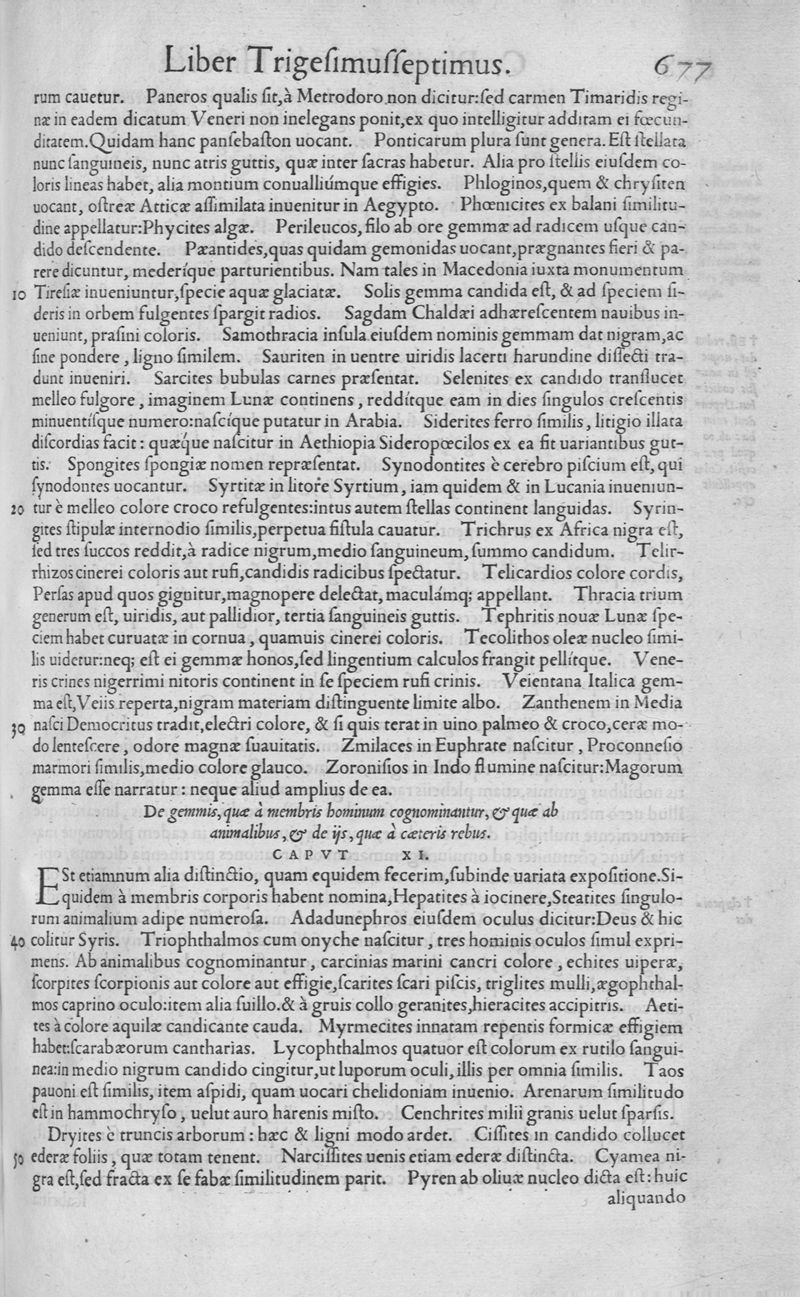 Liber Trigeſimuſſeptimus. 677
rum cauetur. Paneros qualis ſit,à Metrodoro non dicitur:ſed carmen Timaridis regi-
næ in eadem dicatum Veneri non inelegans ponit,ex quo intelligitur additam ei fœcun-
ditatem.Quidam hanc panſebaſton uocant. Ponticarum plura ſunt genera.Eſt ſtellata
nunc ſanguineis, nunc atris guttis, quæ inter ſacras habetur. Alia pro ſtellis eiuſdem co-
loris lineas habet, alia montium conualliúmque effigies. Phloginos,quem & chryſiten
uocant, oſtreæ Atticæ aſſimilata inuenitur in Aegypto. Phœnicites ex balani ſimilitu-
dine appellatur:Phycites algæ. Perileucos, filo ab ore gemmæ ad radicem uſque can-
dido deſcendente. Pæantides,quas quidam gemonidas uocant,prægnantes fieri & pa-
rere dicuntur, mederíque parturientibus. Nam tales in Macedonia iuxta monumentum
10 Tireſiæ inueniuntur,ſpecie aquæ glaciatæ. Solis gemma candida eſt, & ad ſpeciem ſi-
deris in orbem fulgentes ſpargit radios. Sagdam Chaldæi adhæreſcentem nauibus in-
ueniunt, praſini coloris. Samothracia inſula eiuſdem nominis gemmam dat nigram,ac
ſine pondere , ligno ſimilem. Sauriten in uentre uiridis lacerti harundine diſſecti tra-
dunt inueniri. Sarcites bubulas carnes præſentat. Selenites ex candido tranſlucet
melleo fulgore , imaginem Lunæ continens , reddítque eam in dies ſingulos creſcentis
minuentíſque numero:naſcíque putatur in Arabia. Siderites ferro ſimilis, litigio illata
diſcordias facit : quæq́ue naſcitur in Aethiopia Sideropœcilos ex ea fit uariantibus gut-
tis. Spongites ſpongiæ nomen repræſentat. Synodontites è cerebro piſcium eſt, qui
ſynodontes uocantur. Syrtitæ in litore Syrtium, iam quidem & in Lucania inueniun-
20 tur è melleo colore croco refulgentes:intus autem ſtellas continent languidas. Syrin-
gites ſtipulæ internodio ſimilis,perpetua fiſtula cauatur. Trichrus ex Africa nigra eſt,
ſed tres ſuccos reddit,à radice nigrum,medio ſanguineum, ſummo candidum. Telir-
rhizos cinerei coloris aut rufi,candidis radicibus ſpectatur. Telicardios colore cordis,
Perſas apud quos gignitur,magnopere delectat, maculámq; appellant. Thracia trium
generum eſt, uiridis, aut pallidior, tertia ſanguineis guttis. Tephritis nouæ Lunæ ſpe-
ciem habet curuatæ in cornua , quamuis cinerei coloris. Tecolithos oleæ nucleo ſimi-
lis uidetur:neq; eſt ei gemmæ honos,ſed lingentium calculos frangit pellítque. Vene-
ris crines nigerrimi nitoris continent in ſe ſpeciem rufi crinis. Veientana Italica gem-
ma eſt,Veiis reperta,nigram materiam diſtinguente limite albo. Zanthenem in Media
30 naſci Democritus tradit,electri colore, & ſi quis terat in uino palmeo & croco,ceræ mo-
do lenteſcere , odore magnæ ſuauitatis. Zmilaces in Euphrate naſcitur , Proconneſio
marmori ſimilis,medio colore glauco. Zoroniſios in Indo flumine naſcitur:Magorum
gemma eſſe narratur : neque aliud amplius de ea.
De gemmis, quæ à membris hominum cognominantur, & quæ ab
animalibus, & de ijs, quæ à cæteris rebus.
CAPVT XI.
ESt etiamnum alia diſtinctio, quam equidem fecerim,ſubinde uariata expoſitione.Si-
quidem à membris corporis habent nomina,Hepatites à iocinere,Steatites ſingulo-
rum animalium adipe numeroſa. Adadunephros eiuſdem oculus dicitur:Deus & hic
40 colitur Syris. Triophthalmos cum onyche naſcitur , tres hominis oculos ſimul expri-
mens. Ab animalibus cognominantur , carcinias marini cancri colore , echites uiperæ,
ſcorpites ſcorpionis aut colore aut effigie,ſcarites ſcari piſcis, triglites mulli,ægophthal-
mos caprino oculo:item alia ſuillo.& à gruis collo geranites,hieracites accipitris. Aeti-
tes à colore aquilæ candicante cauda. Myrmecites innatam repentis formicæ effigiem
habet:ſcarabæorum cantharias. Lycophthalmos quatuor eſt colorum ex rutilo ſangui-
nea:in medio nigrum candido cingitur,ut luporum oculi, illis per omnia ſimilis. Taos
pauoni eſt ſimilis, item aſpidi, quam uocari chelidoniam inuenio. Arenarum ſimilitudo
eſt in hammochryſo , uelut auro harenis miſto. Cenchrites milii granis uelut ſparſis.
Dryites è truncis arborum : hæc & ligni modo ardet. Ciſſites in candido collucet
50 ederæ foliis , quæ totam tenent. Narciſſites uenis etiam ederæ diſtincta. Cyamea ni-
gra eſt,ſed fracta ex ſe fabæ ſimilitudinem parit. Pyren ab oliuæ nucleo dicta eſt : huic
aliquando